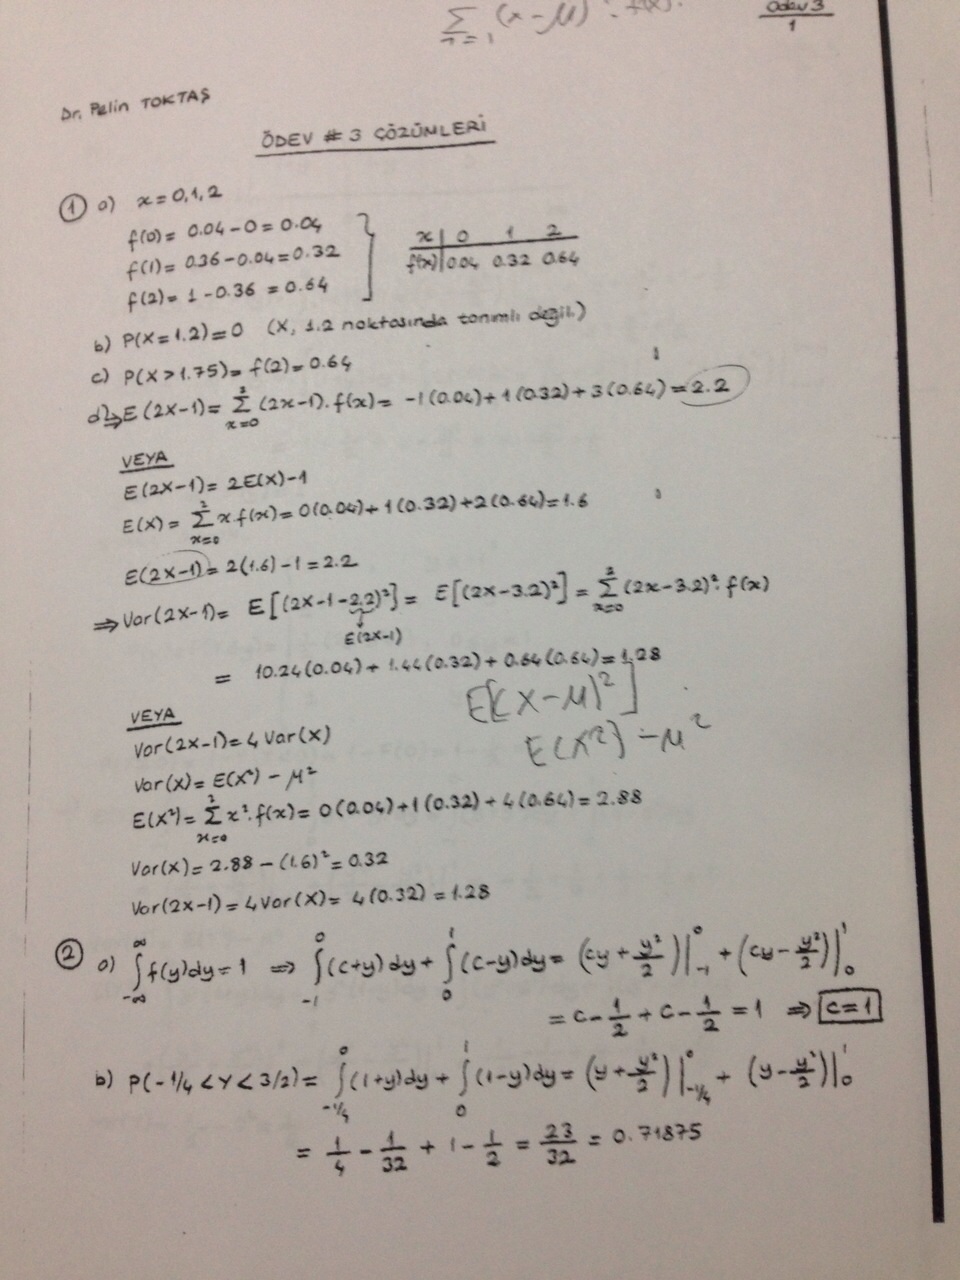 Σ (x-μ) . f(x).
n=1
Ödev 3
1
Dr. Pelin TOKTAŞ
ÖDEV # 3 ÇÖZÜMLERİ
① a) x=0,1,2
f(0)= 0.04-0=0.04
f(1)= 0.36-0.04=0.32
f(2)= 1-0.36 = 0.64
x | 0 1 2
f(x) | 0.04 0.32 0.64
b) P(X=1.2)=0 (X, 1.2 noktasında tanımlı değil.)
c) P(X>1.75)= f(2)=0.64
d) ⇒ E(2X-1)= Σ_{x=0}^{2} (2x-1).f(x)= -1(0.04)+1(0.32)+3(0.64)=2.2
VEYA
E(2X-1)= 2E(X)-1
E(X)= Σ_{x=0}^{2} x.f(x)=0(0.04)+1(0.32)+2(0.64)=1.6
E(2X-1)=2(1.6)-1=2.2
⇒ Var(2X-1)= E[(2X-1-2.2)²]= E[(2X-3.2)²]= Σ_{x=0}^{2} (2x-3.2)².f(x)
E(2X-1)
= 10.24(0.04)+1.44(0.32)+0.64(0.64)=1.28
E[(X-μ)²]
E(X²)-μ²
VEYA
Var(2X-1)=4Var(X)
Var(X)= E(X²)-μ²
E(X²)= Σ_{x=0}^{2} x².f(x)= 0(0.04)+1(0.32)+4(0.64)=2.88
Var(X)=2.88-(1.6)²=0.32
Var(2X-1)=4Var(X)=4(0.32)=1.28
② a) ∫_{-∞}^{∞} f(y)dy=1 ⇒ ∫_{-1}^{0} (c+y)dy+ ∫_{0}^{1} (c-y)dy= (cy+y²/2)|_{-1}^{0} +(cy-y²/2)|_{0}^{1}
= c-1/2+c-1/2=1 ⇒ c=1
b) P(-1/4<Y<3/2)= ∫_{-1/4}^{0} (1+y)dy+ ∫_{0}^{1} (1-y)dy= (y+y²/2)|_{-1/4}^{0} + (y-y²/2)|_{0}^{1}
= 1/4-1/32+1-1/2=23/32=0.71875